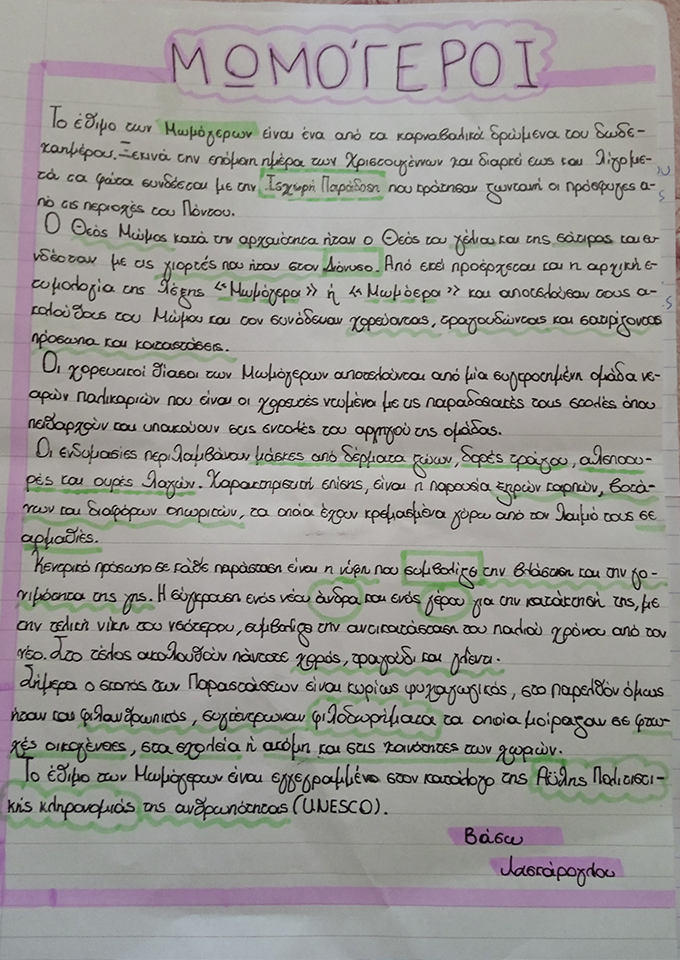 ΜΩΜΌΓΕΡΟΙ
Το έθιμο των Μωμόγερων είναι ένα από τα καρναβαλικά δρώμενα του δωδε-
καημέρου. Ξεκινά την επόμενη ημέρα των Χριστουγέννων και διαρκεί εως και λίγο με-
τά τα φώτα συνδέεται με την Ισχυρή Παράδοση που κράτησαν ζωντανή οι πρόσφυγες α-
πό τις περιοχές του Πόντου.
Ο Θεός Μώμος κατά την αρχαιότητα ήταν ο Θεός του γέλιου και της σάτιρας και συ-
νδέοταν με τις γιορτές που ήταν στον Διόνυσο. Από εκεί προέρχεται και η αρχική ε-
τυμολογία της λέξης «Μωμόγερα» ή «Μωμόερα» και αποτελούσαν τους α-
κολούθους του Μώμου και τον συνόδευαν χορεύοντας, τραγουδώντας και σατιρίζοντας
πρόσωπα και καταστάσεις.
Οι χορευτικοί θίασοι των Μωμόγερων αποτελούνται από μία συγκροτημένη ομάδα νε-
αρών παλικαριών που είναι οι χορευτές ντυμένοι με τις παραδοσιακές τους στολές όπου
πειθαρχούν και υπακούουν στις εντολές του αρχηγού της ομάδας.
Οι ενδυμασίες περιλαμβάνουν μάσκες από δέρματα ζώων, δορές τράγου, αλεπoου-
ρές και ουρές λαγών. Χαρακτηριστική επίσης, είναι η παρουσία ξηρών καρπών, βοτά-
νων και διαφόρων οπωρικών, τα οποία έχουν κρεμασμένα γύρω από τον λαιμό τους σε
αρμαθιές.
Κεντρικό πρόσωπο σε κάθε παράσταση είναι η νύφη που συμβολίζει την βλάστηση και την γο-
νιμότητα της γης. Η σύγκρουση ενός νέου άνδρα και ενός γέρου για την κατάκτησή της, με
την τελική νίκη του νεότερου, συμβολίζει την αντικατάσταση του παλιού χρόνου από τον
νέο. Στο τέλος ακολουθούν πάντοτε χορός, τραγούδι και γλέντι.
Σήμερα ο σκοπός των Παραστάσεων είναι κυρίως ψυχαγωγικός, στο παρελθόν όμως
ήταν και φιλανθρωπικός, συγκέντρωναν φιλοδωρήματα τα οποία μοίραζαν σε φτω-
χές οικογένειες, στα σχολεία ή ακόμη και στις κοινότητες των χωριών.
Το έθιμο των Μωμόγερων είναι εγγεγραμμένο στον κατάλογο της Αύλης Πολιτιστι-
κής κληρονομιάς της ανθρωπότητας (UNESCO).
Βάσω
Λασπάρογλου